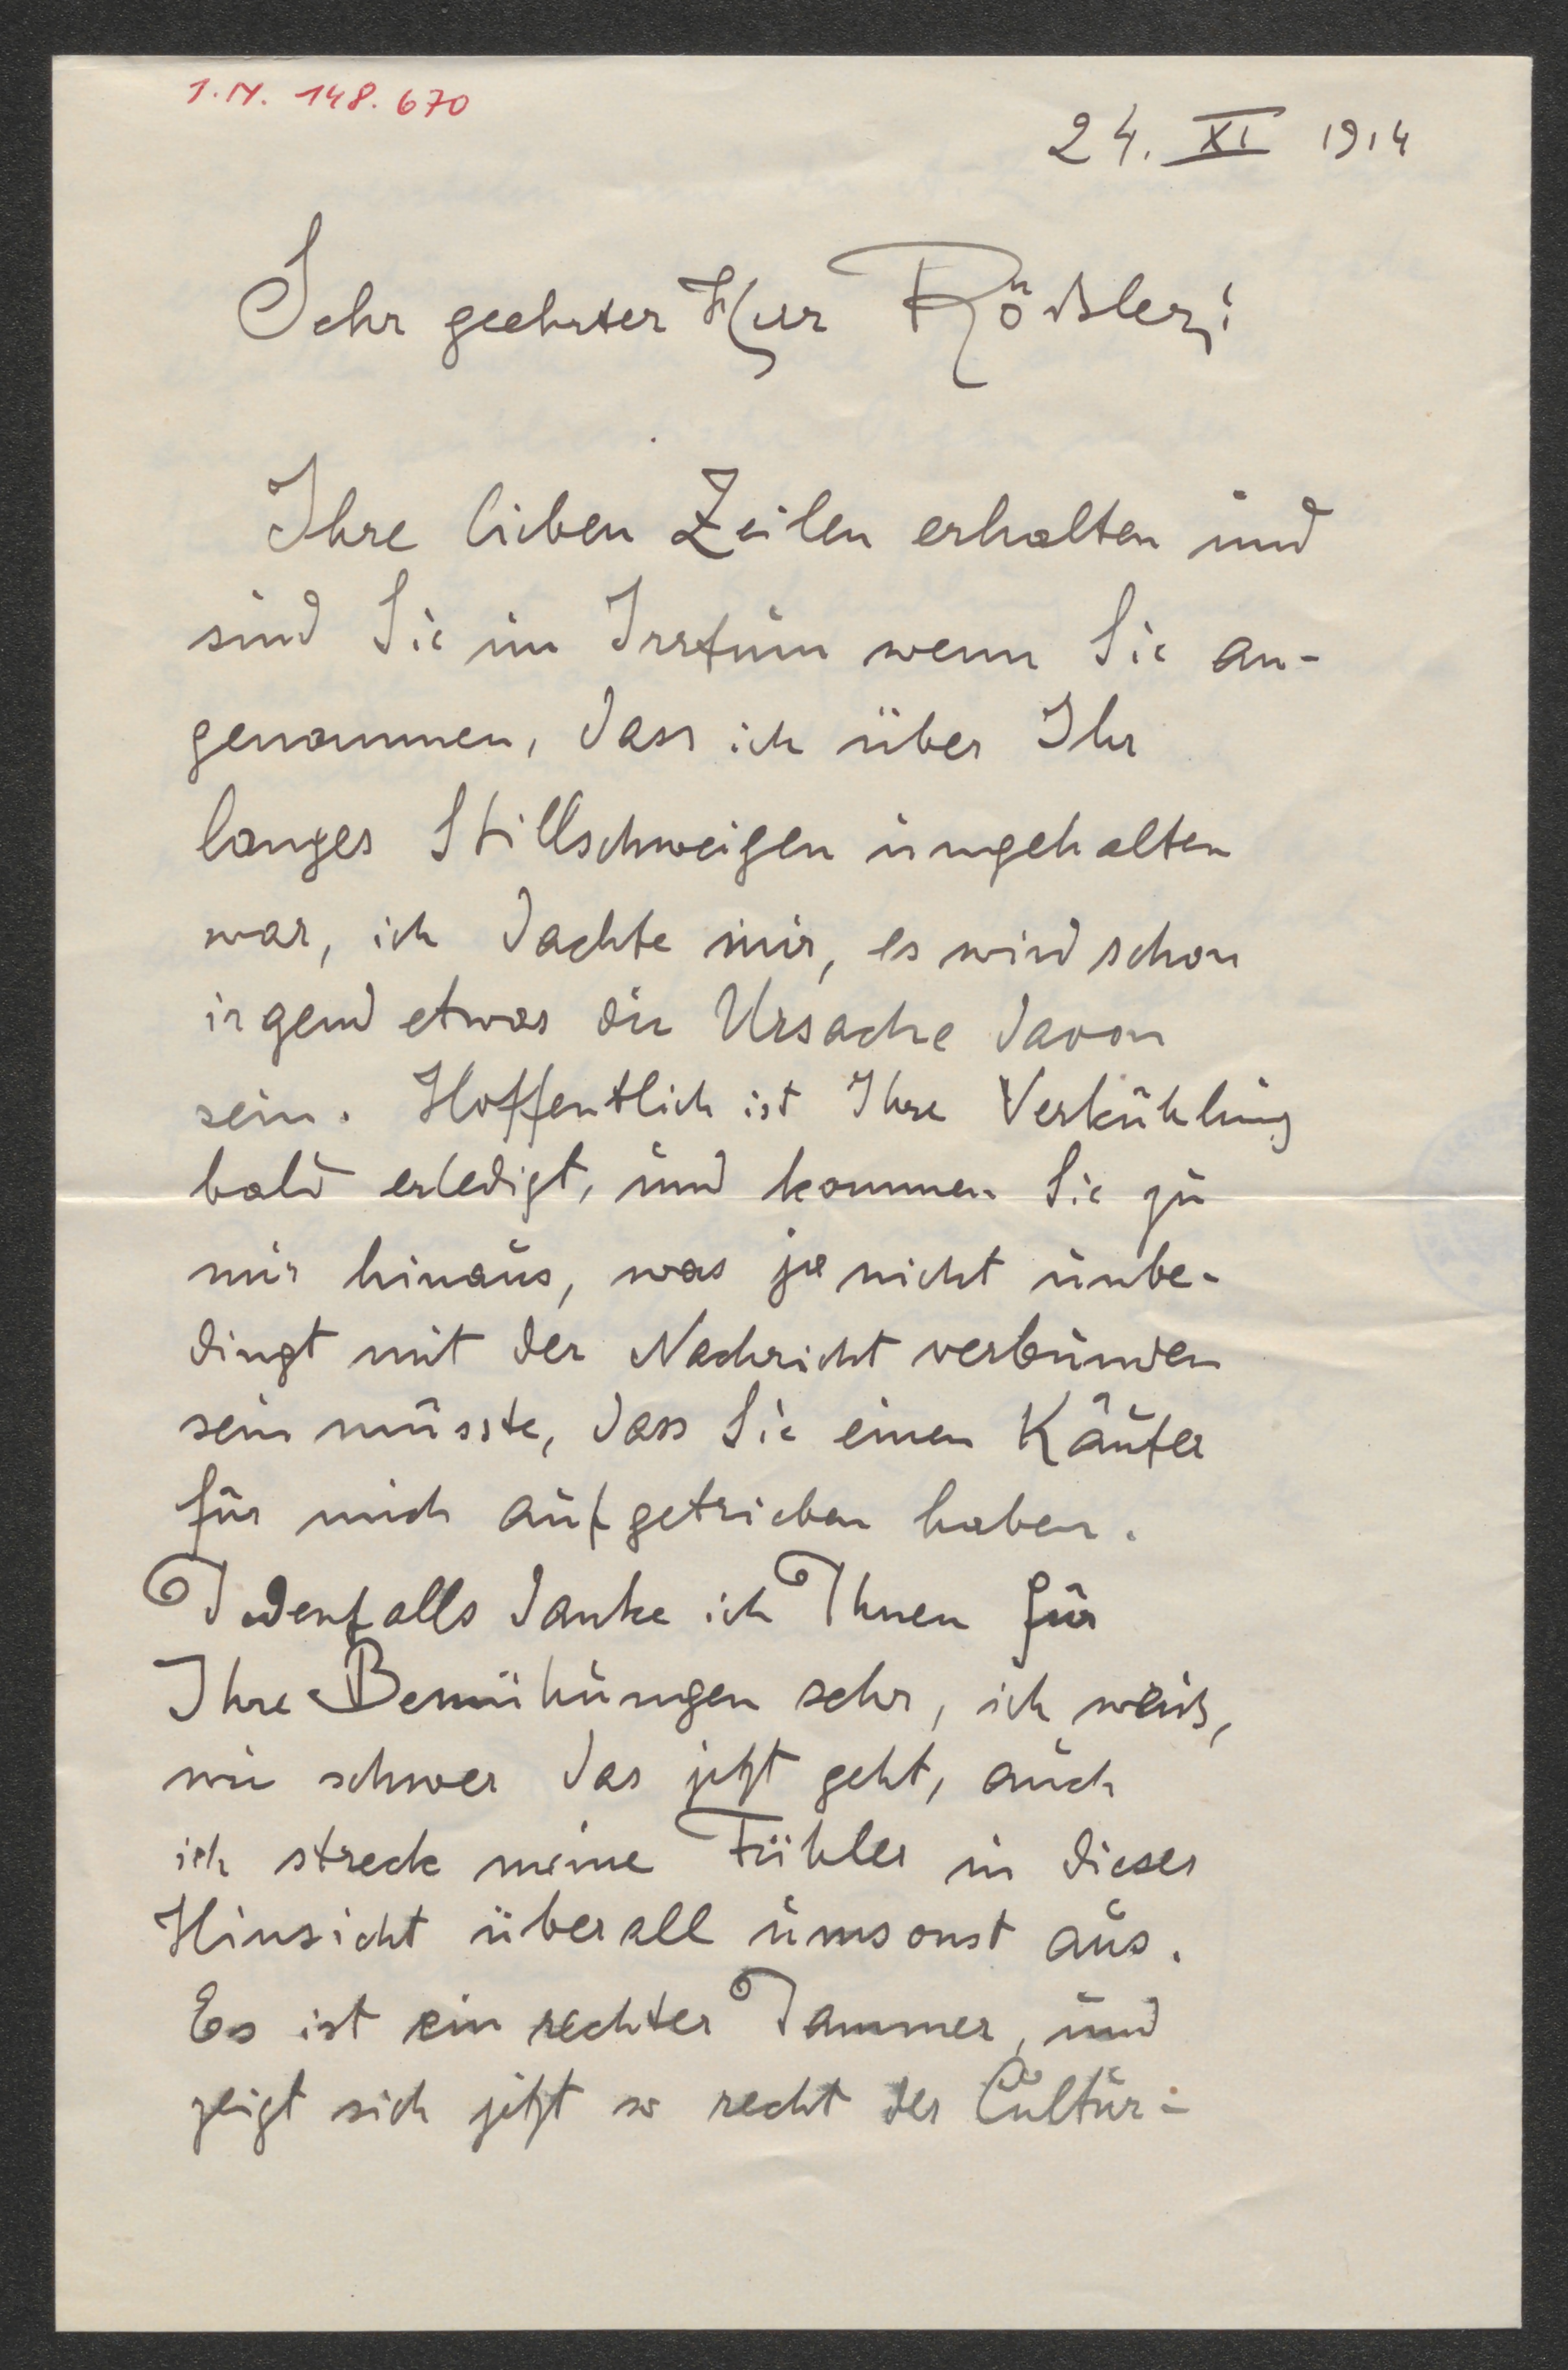 I.N. 148.670
24. XI 1914
Sehr geehrter Herr Rößler!
Ihre lieben Zeilen erhalten und
sind Sie im Irrtum wenn Sie an-
genommen, dass ich über Ihr
langes Stillschweigen ungehalten
war, ich dachte mir, es wird schon
irgend etwas die Ursache davon
sein. Hoffentlich ist Ihre Verkühlung
bald erledigt, und kommen Sie zu
mir hinaus, was ja nicht unbe-
dingt mit der Nachricht verbunden
sein müsste, dass Sie einen Käufer
für mich aufgetrieben haben.
Jedenfalls danke ich Ihnen für
Ihre Bemühungen sehr, ich weiß,
wie schwer das jetzt geht, auch
ich strecke meine Fühler in dieser
Hinsicht überall umsonst aus.
Es ist ein rechter Jammer, und
zeigt sich jetzt so recht der Cultur-